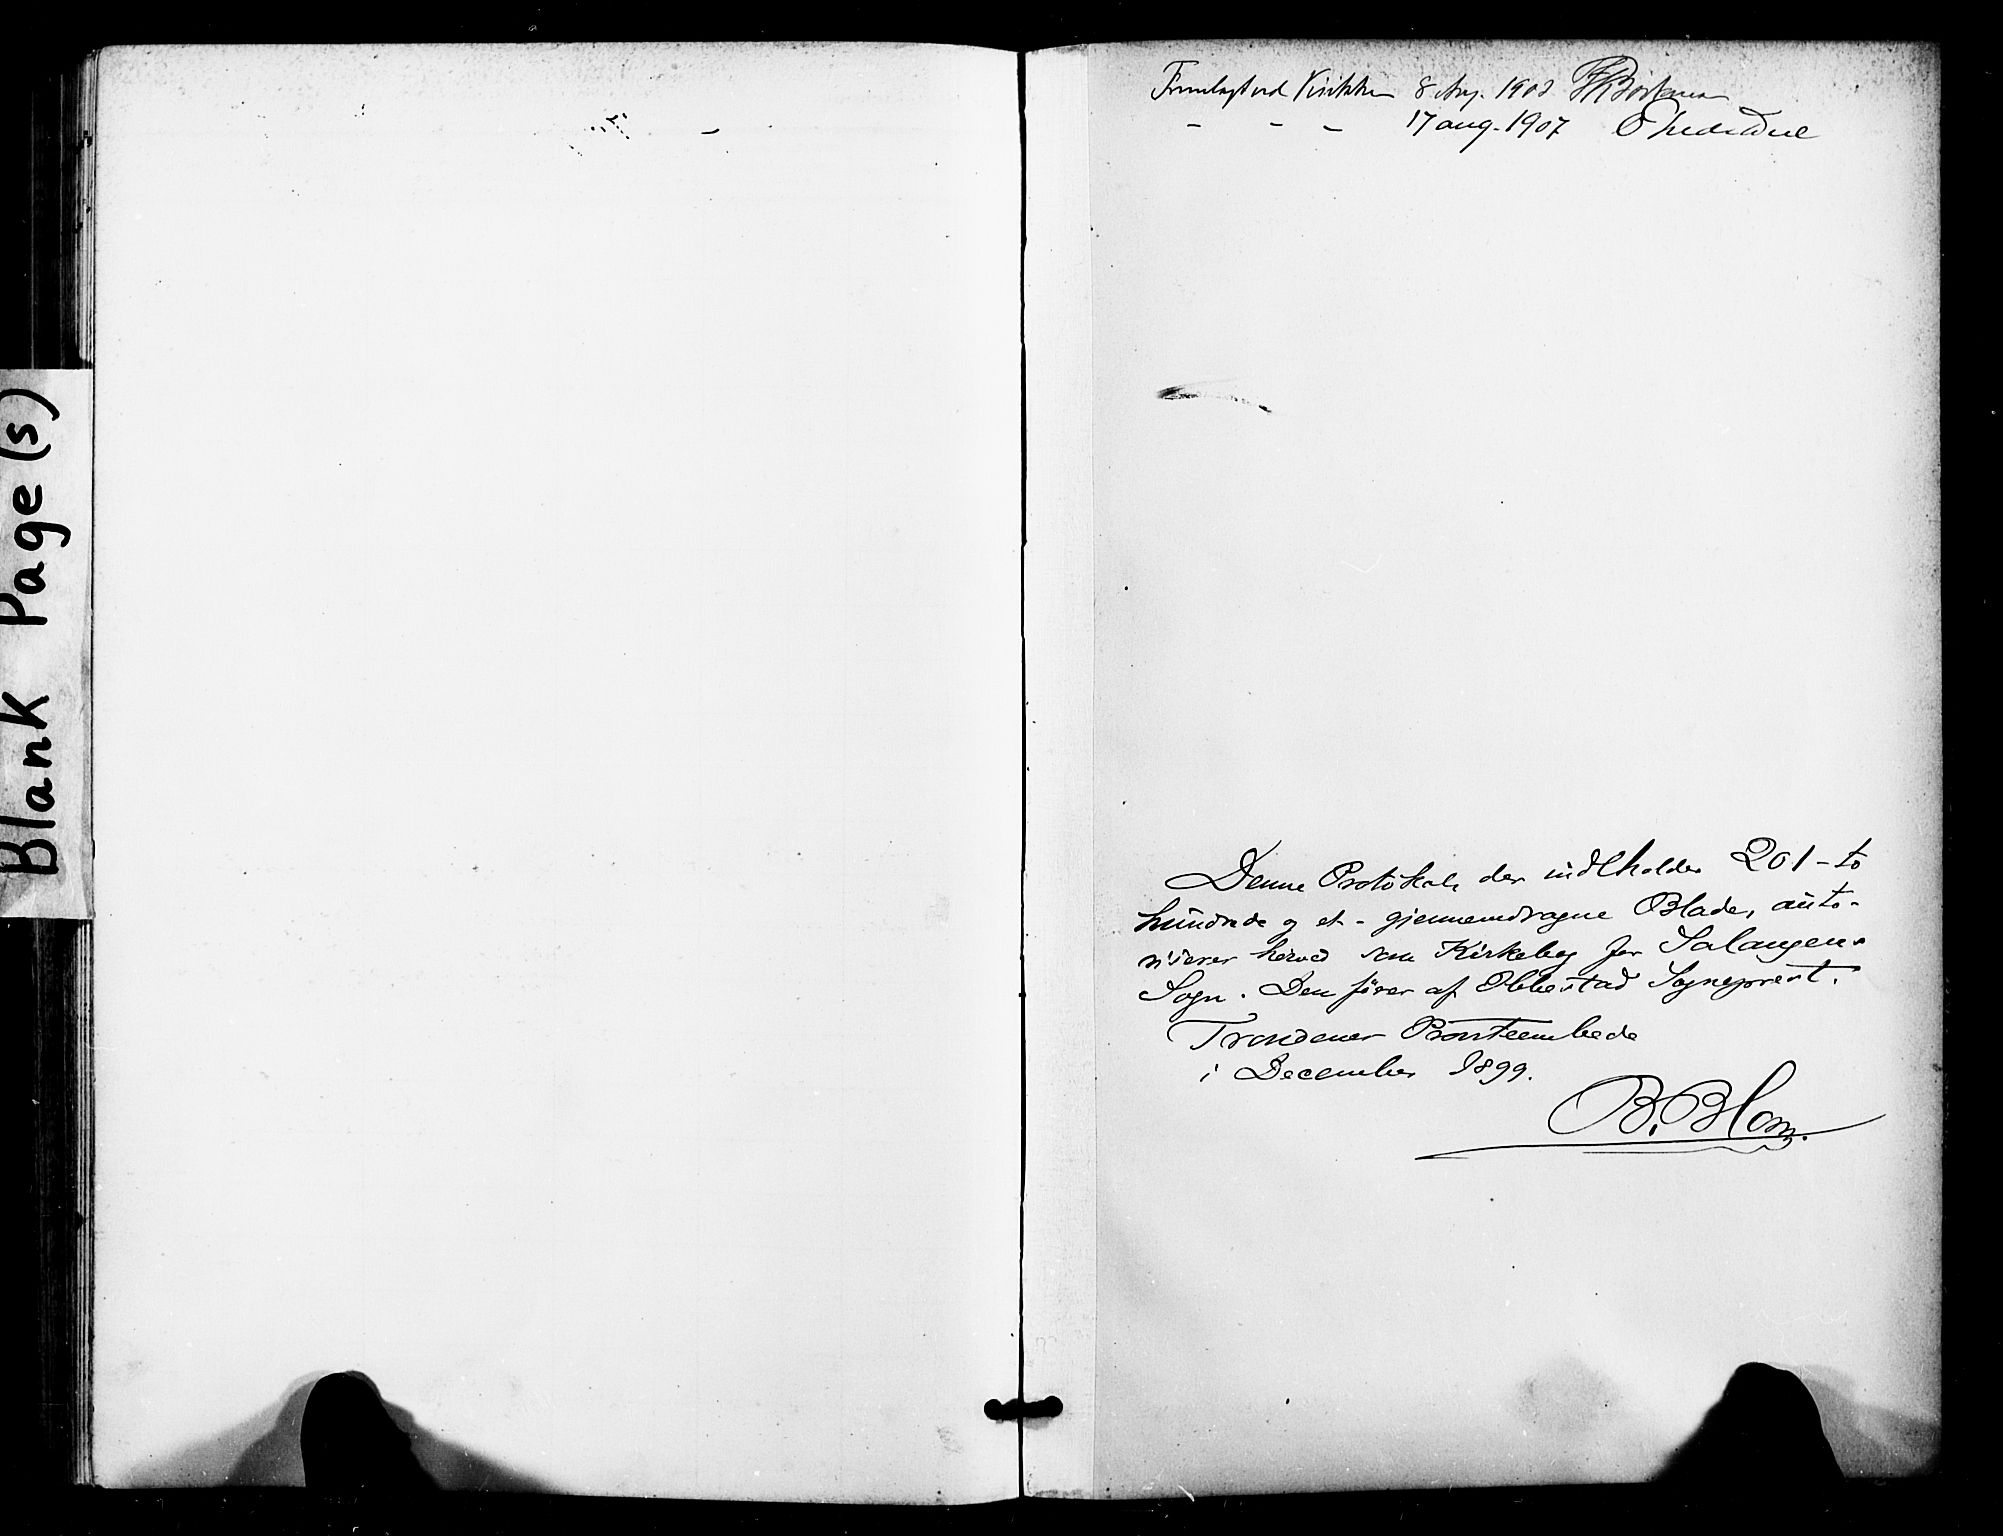 Blank Page(s)
Fremlagt ved Visitatsen 8 Aug. 1903
- - - 17 aug. 1907
Denne Protokol, der indeholder 201 - to
hundrede og et - gjennemdragne Blade, auto-
riseres herved som Kirkebog for Salangens
Sogn. Den føres af Ibbestad Sogneprest.
Trondenes Provsteembede
i December 1899.
B. Blom.